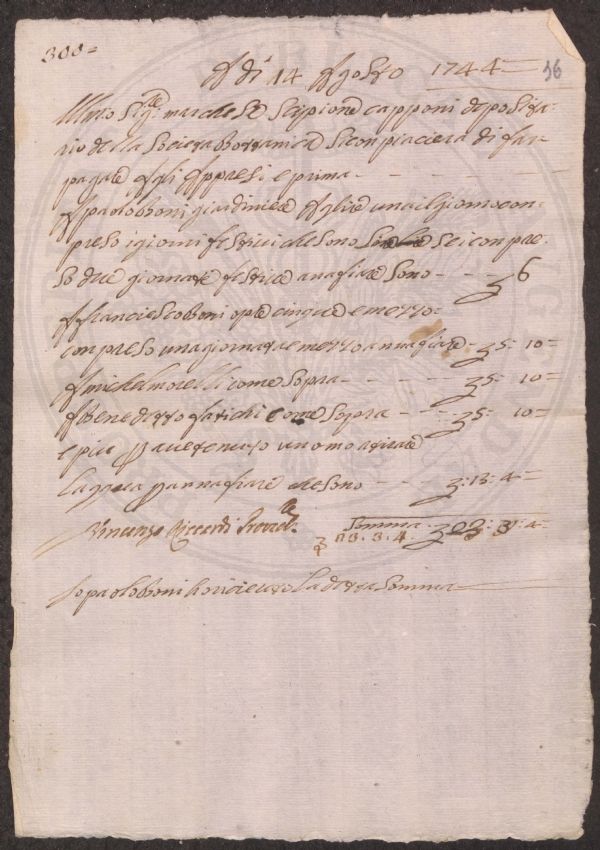 300=
A dì 14 Agosto 1744 36
Ill.mo Sig.re marchese Scipione capponi deposita=
rio della Società Bottanica Si conpiacierà di far
pagare Agli Appresi e prima
A paolo boni giardiniere A lire una il giorno con
preso i giorni festivi che sono sei conpre
so due giornate festive a nafiare sono 6
A franciescho boni opre cinque e mezzo=
con preso una giornata e mezzo a nnafiare 5 10=
A michel morelli come sopra 5 10=
A Benedetto fatichi come Sopra 5 10=
e più p avere tenuto un omo a tirare
la p nnafiare che Sono 3:13:4
Vincenzo Riccardi Somma
23.3.4.
Io paolo boni ho ricieuto la detta Somma